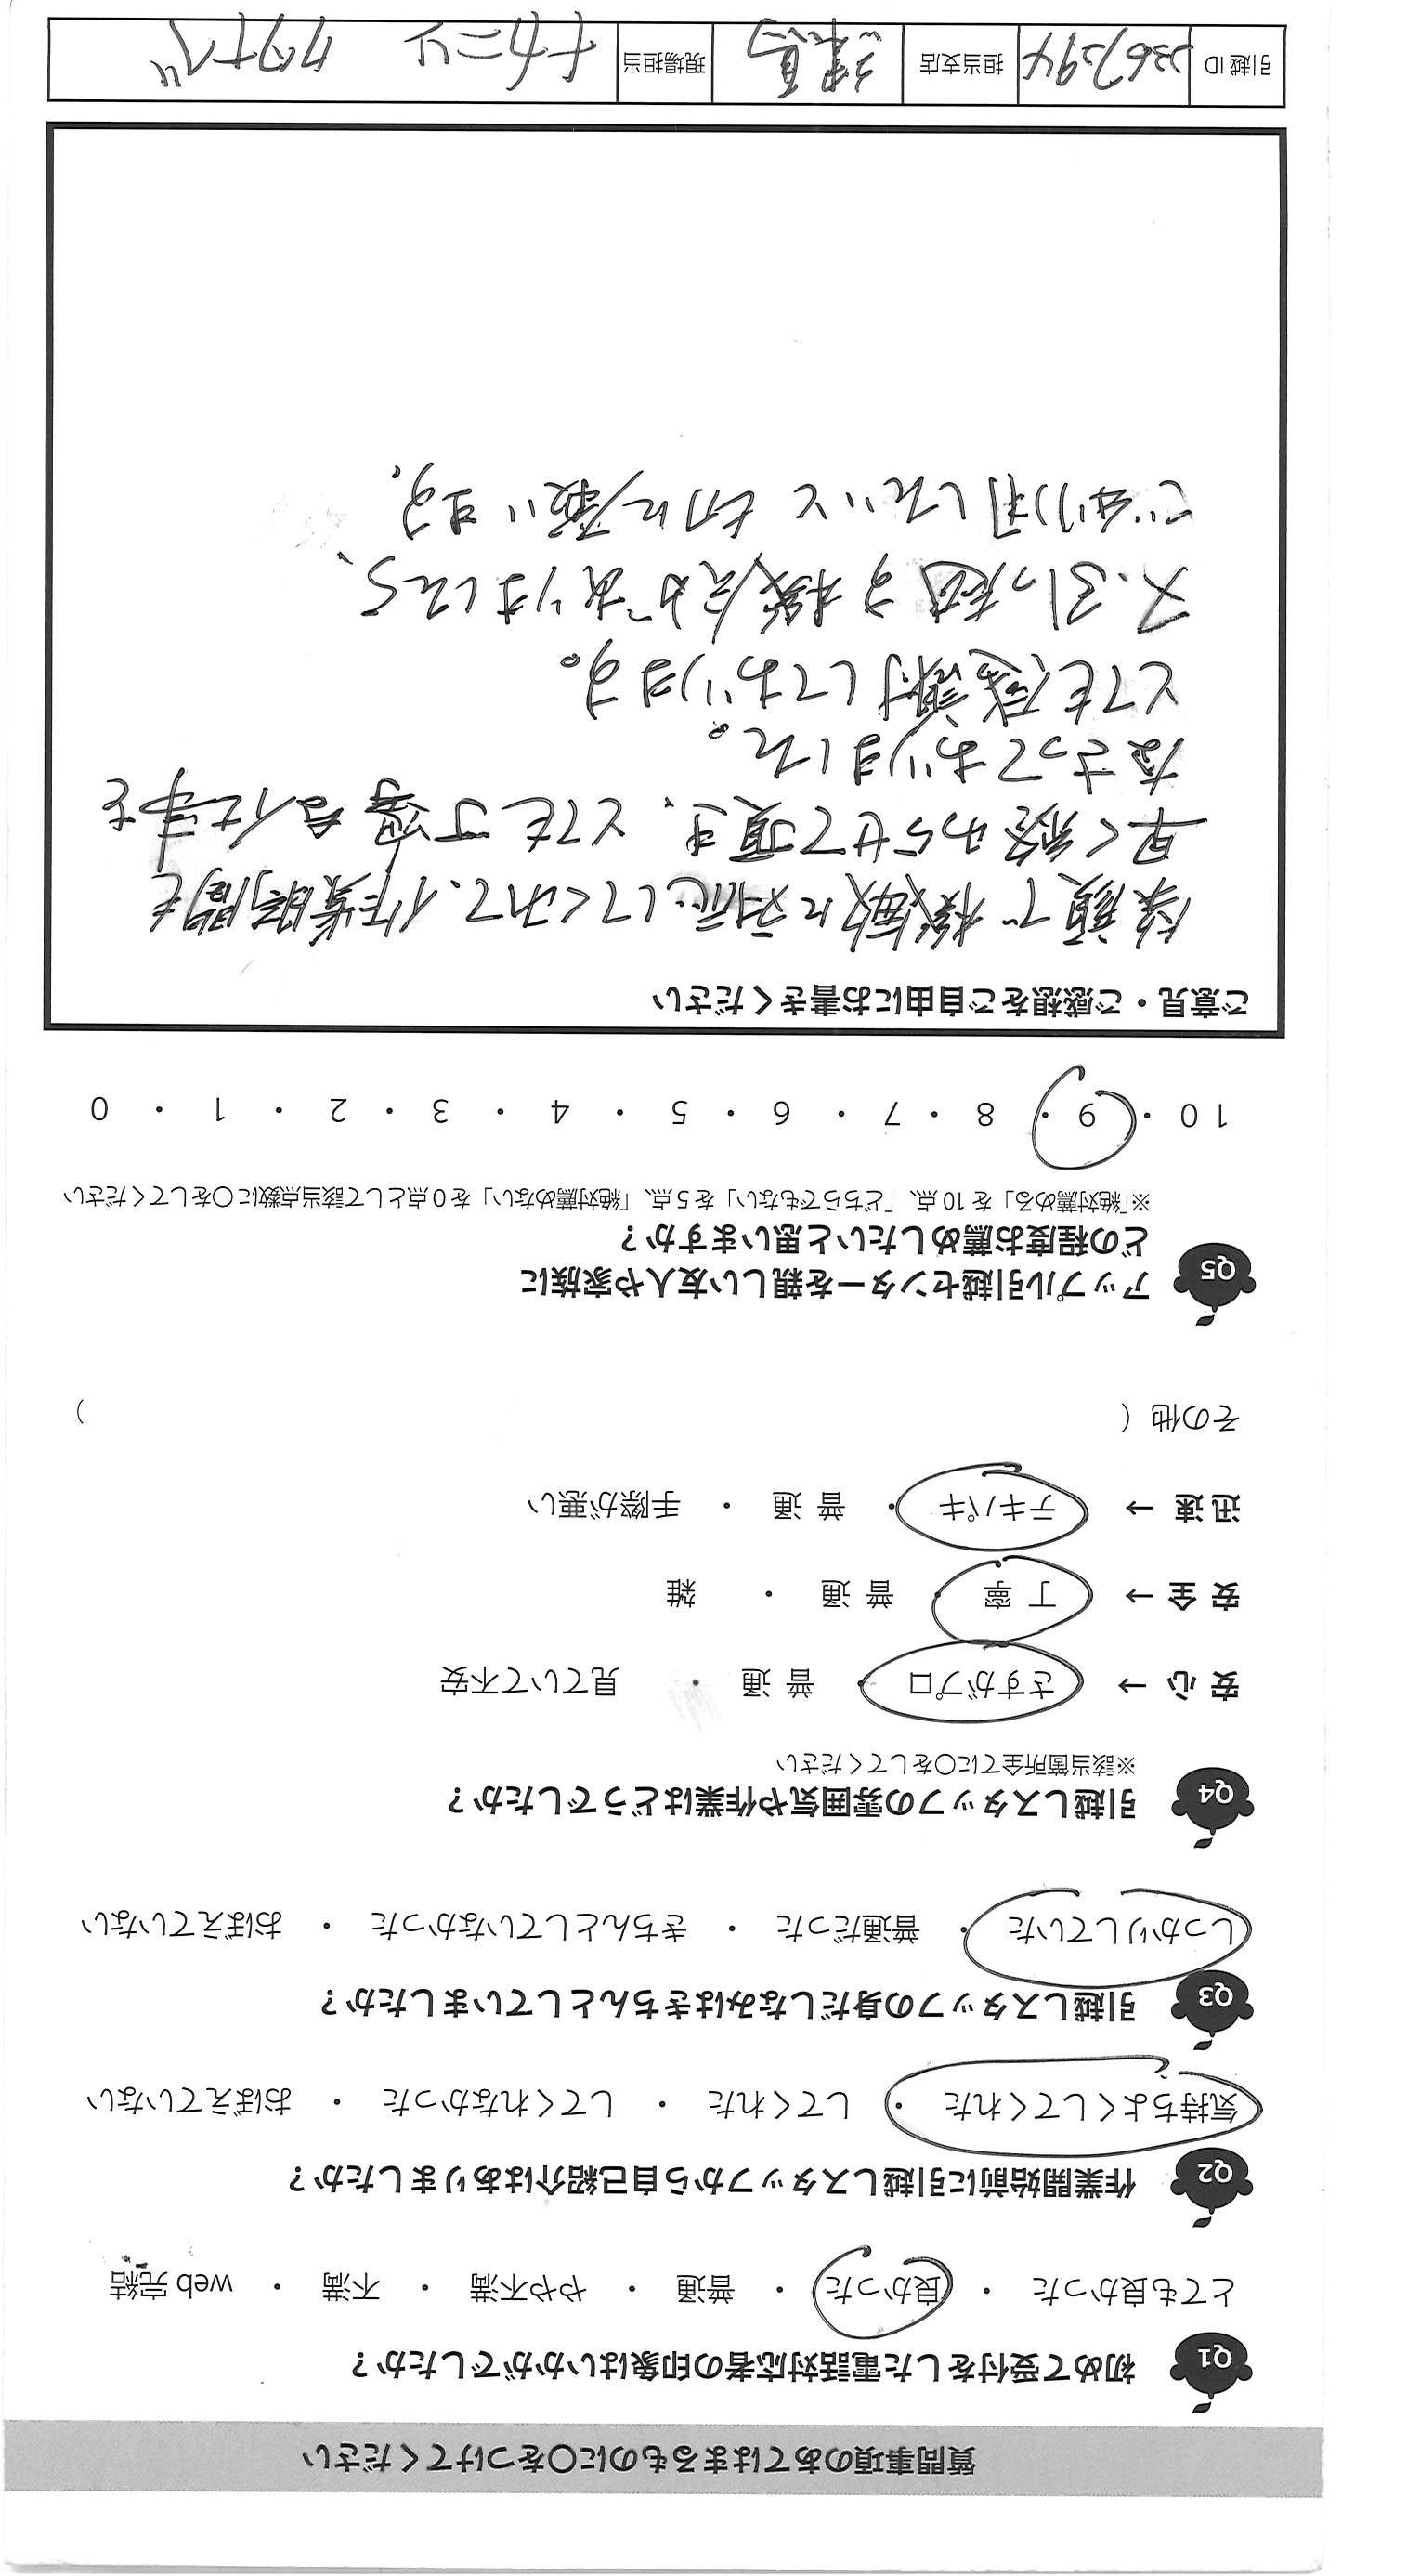 質問事項のあてはまるものに〇をつけてください
Q1 初めて受付をした電話対応者の印象はいかがでしたか？
とても良かった ・ 良かった ・ 普通 ・ やや不満 ・ 不満 ・ web 完結
Q2 作業開始前に引越しスタッフから自己紹介はありましたか？
気持ちよくしてくれた ・ してくれた ・ してくれなかった ・ おぼえていない
Q3 引越しスタッフの身だしなみはきちんとしていましたか？
しっかりしていた ・ 普通だった ・ きちんとしていなかった ・ おぼえていない
Q4 引越しスタッフの雰囲気や作業はどうでしたか？
※該当箇所全てに〇をしてください
安 心 → さすがプロ ・ 普 通 ・ 見ていて不安
安 全 → 丁 寧 ・ 普 通 ・ 雑
迅 速 → テキパキ ・ 普 通 ・ 手際が悪い
その他（ ）
Q5 アップル引越センターを親しい友人や家族に
どの程度お薦めしたいと思いますか？
※「絶対薦める」を 10 点、「どちらでもない」を 5 点、「絶対薦めない」を 0 点として該当点数に〇をしてください
10 ・ 9 ・ 8 ・ 7 ・ 6 ・ 5 ・ 4 ・ 3 ・ 2 ・ 1 ・ 0
ご意見・ご感想をご自由にお書きください
笑顔で機敏に対応してくれて、作業時間も
早く終わらせて頂き、とても丁寧な仕事を
なさっておりました。
とても感謝しております。
又、引っ越す機会がありましたら、
ご利用したいと切に願います。
引越 ID 2367294 担当支店 練馬 現場担当 ナカニシ ワタナベ